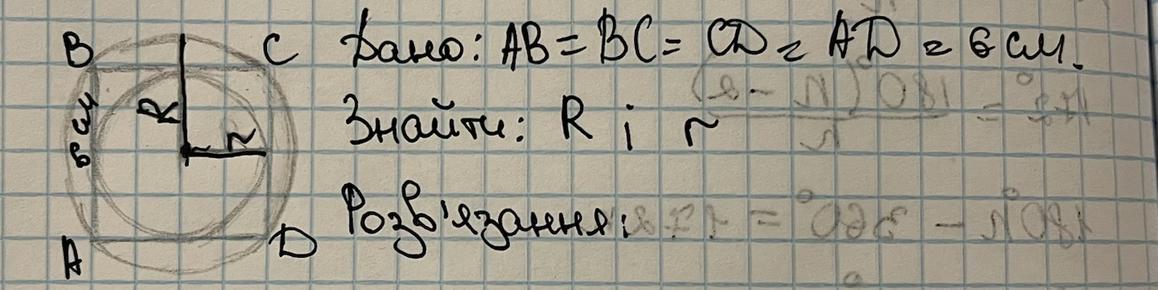 B C Дано: AB = BC = CD = AD = 6 см.
6 см R r Знайти: R і r
A D Розв'язання: